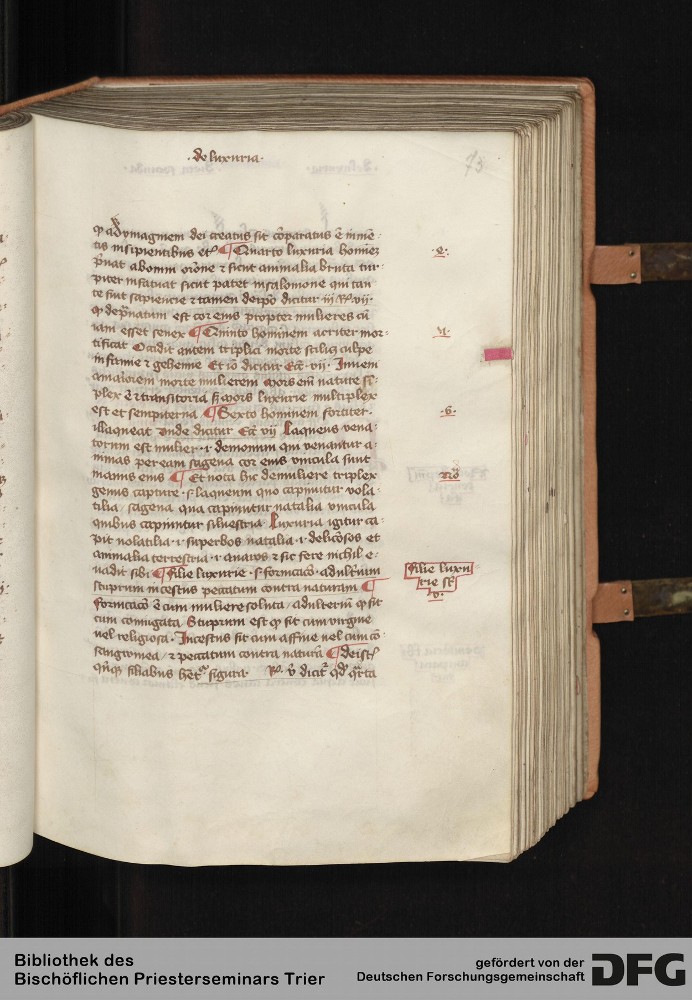 de luxuria
73
q ad ymaginem dei creatus sit cōparatus ē iumē-
tis insipientibus etc̄ ¶ Quarto luxuria hominē
p̄uat a bonū orōne ⁊ sicut animalia bruta tur-
piter infatuat sicut patet in salomone qui tan
te fuit sapiencie ⁊ tamen de ip̄o dicitur iii Rꝫ vii
ꝙ dep̄uatum est cor eius propter mulieres cū
iam esset senex ¶ Quinto hominem acriter mor-
tificat Occidit autem triplici morte scilicꝫ culpe
infamie ⁊ gehenne Et iō dicitur Ecc̄ vii Inueni
amariorem morte mulierem Mors em̄ nature si-
plex ē ⁊ transitoria sꝫ mors luxurie multiplex
est et sempiterna ¶ Sexto hominem fortiter
illaqueat vnde dicitur Ecc̄ vii Laqueus vena-
torum est mulier .i. demonum qui venantur a-
nimas peream sagena cor eius vincula sunt
manus eius ¶ Et nota hic de muliere triplex
genus capture .s. laqueum quo capiuntur vola-
tilia / sagena qua capiuntur natalia vincula
quibus capiuntur siluestria Luxuria igitur ca-
pit volatilia .i. superbos natalia .i. delicosos et
animalia terrestria .i. auaros ⁊ sic fere nichil e-
uadit sibi ¶ filie luxurie .s. fornicacō adult̄ium
stuprum incestus peccatum contra naturam ¶
fornicacō ē cum muliere soluta / adulterīū ꝙ fit
cum coniugata / Stuprum est ꝙ fit cum virgine
uel religiosa . Incestus fit cum affine uel cum cō-
sangwinea / ⁊ peccatum contra naturā ¶ de ist̄
qīnqꝫ filiabus het̄ʳ figura Rꝫ v̄ dicit̄ qd̄ q̄rta
4.
6.
Nō
filie luxu
rie st̄
v.
Bibliothek des
Bischöflichen Priesterseminars Trier
gefördert von der
Deutschen Forschungsgemeinschaft
DFG